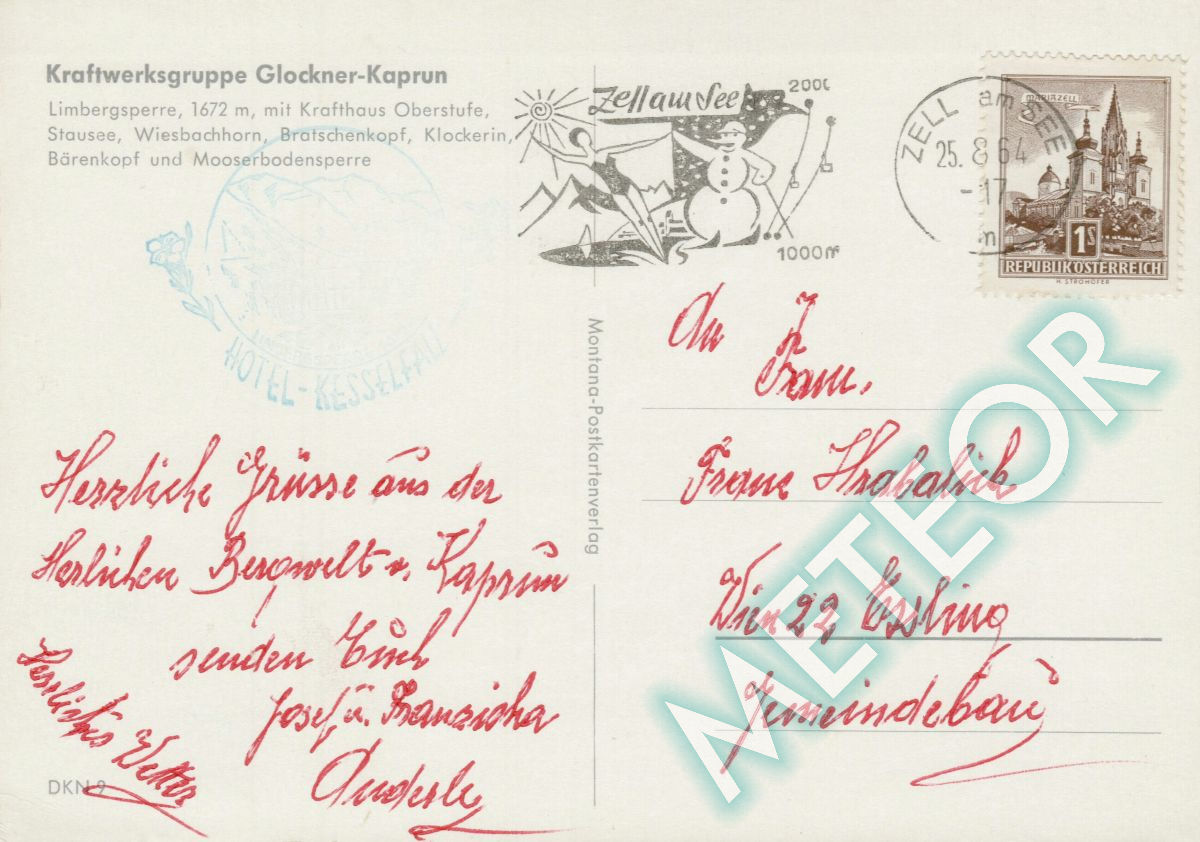 Kraftwerksgruppe Glockner-Kaprun
Limbergsperre, 1672 m, mit Krafthaus Oberstufe,
Stausee, Wiesbachhorn, Bratschenkopf, Klockerin,
Bärenkopf und Mooserbodensperre
Zell am See
2000
1000m
ZELL am SEE
25. 8 64
-17
MARIAZELL
1S
REPUBLIK ÖSTERREICH
H. STROHOFER
HOTEL-KESSELFALL
Montana-Postkartenverlag
Herzliche Grüsse aus der
Herlichen Bergwelt v. Kaprun
senden Euch
Josef u. Franziska
Anderle
Herrliches Wetter
DKN 9
An
Fam.
Franc Hrabalick
Wien 22, Essling
Gemeindebau
METEOR